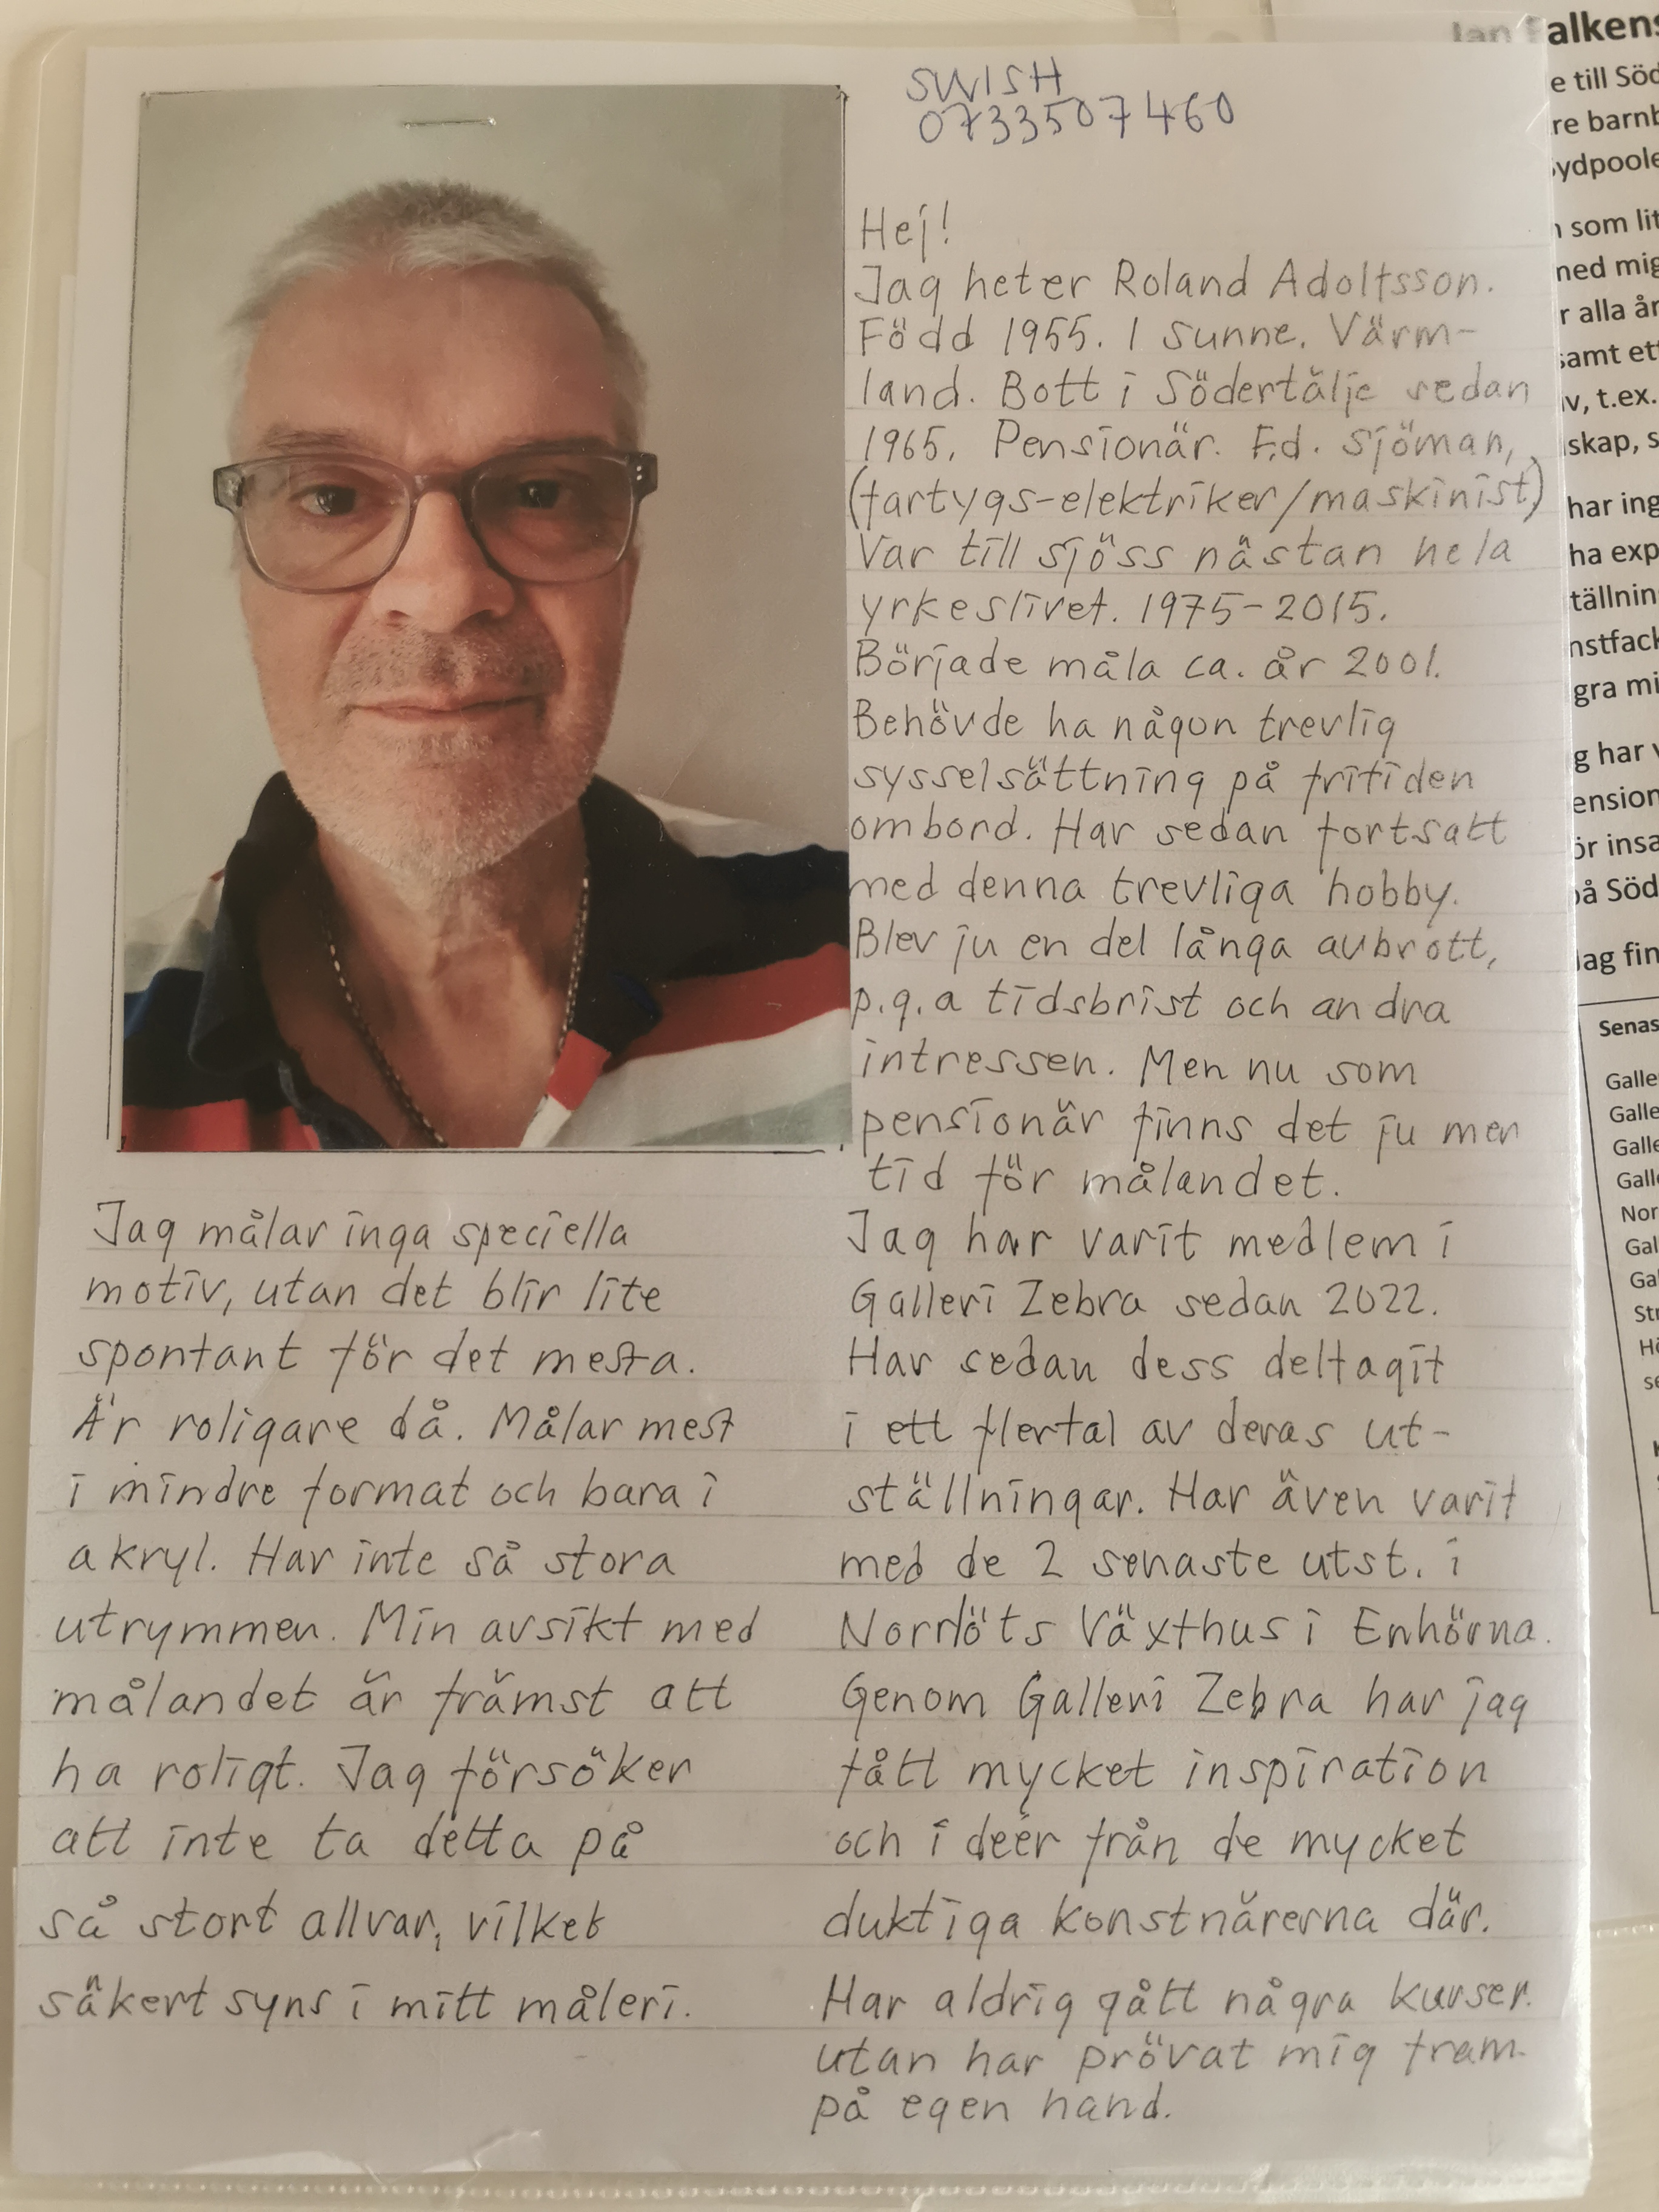 SWISH
0733507460
Hej!
Jag heter Roland Adolfsson.
Född 1955. I Sunne. Värm-
land. Bott i Södertälje sedan
1965. Pensionär. F.d. Sjöman,
(fartygs-elektriker/maskinist)
Var till sjöss nästan hela
yrkeslivet. 1975-2015.
Började måla ca. år 2001.
Behövde ha någon trevlig
sysselsättning på fritiden
ombord. Har sedan fortsatt
med denna trevliga hobby.
Blev ju en del långa avbrott,
p.g.a tidsbrist och andra
intressen. Men nu som
pensionär finns det ju mer
tid för målandet.
Jag har varit medlem i
Galleri Zebra sedan 2022.
Har sedan dess deltagit
i ett flertal av deras ut-
ställningar. Har även varit
med de 2 senaste utst. i
Norrlöts Växthus i Enhörna.
Genom Galleri Zebra har jag
fått mycket inspiration
och ideér från de mycket
duktiga konstnärerna där.
Har aldrig gått några kurser.
utan har prövat mig fram
på egen hand.
Jag målar inga speciella
motiv, utan det blir lite
spontant för det mesta.
Är roligare då. Målar mest
i mindre format och bara i
akryl. Har inte så stora
utrymmen. Min avsikt med
målandet är främst att
ha roligt. Jag försöker
att inte ta detta på
så stort allvar, vilket
säkert syns i mitt måleri.
Jan Falkens
e till Söd
re barnb
ydpoole
som lit
med mig
r alla år
samt ett
v, t.ex.
skap, s
har ing
ha exp
tällnin
nstfack
gra mi
g har v
ension
ör insa
på Söd
Jag fin
Senas
Galle
Galle
Galle
Galle
Nor
Gal
Ga
Str
Hö
se